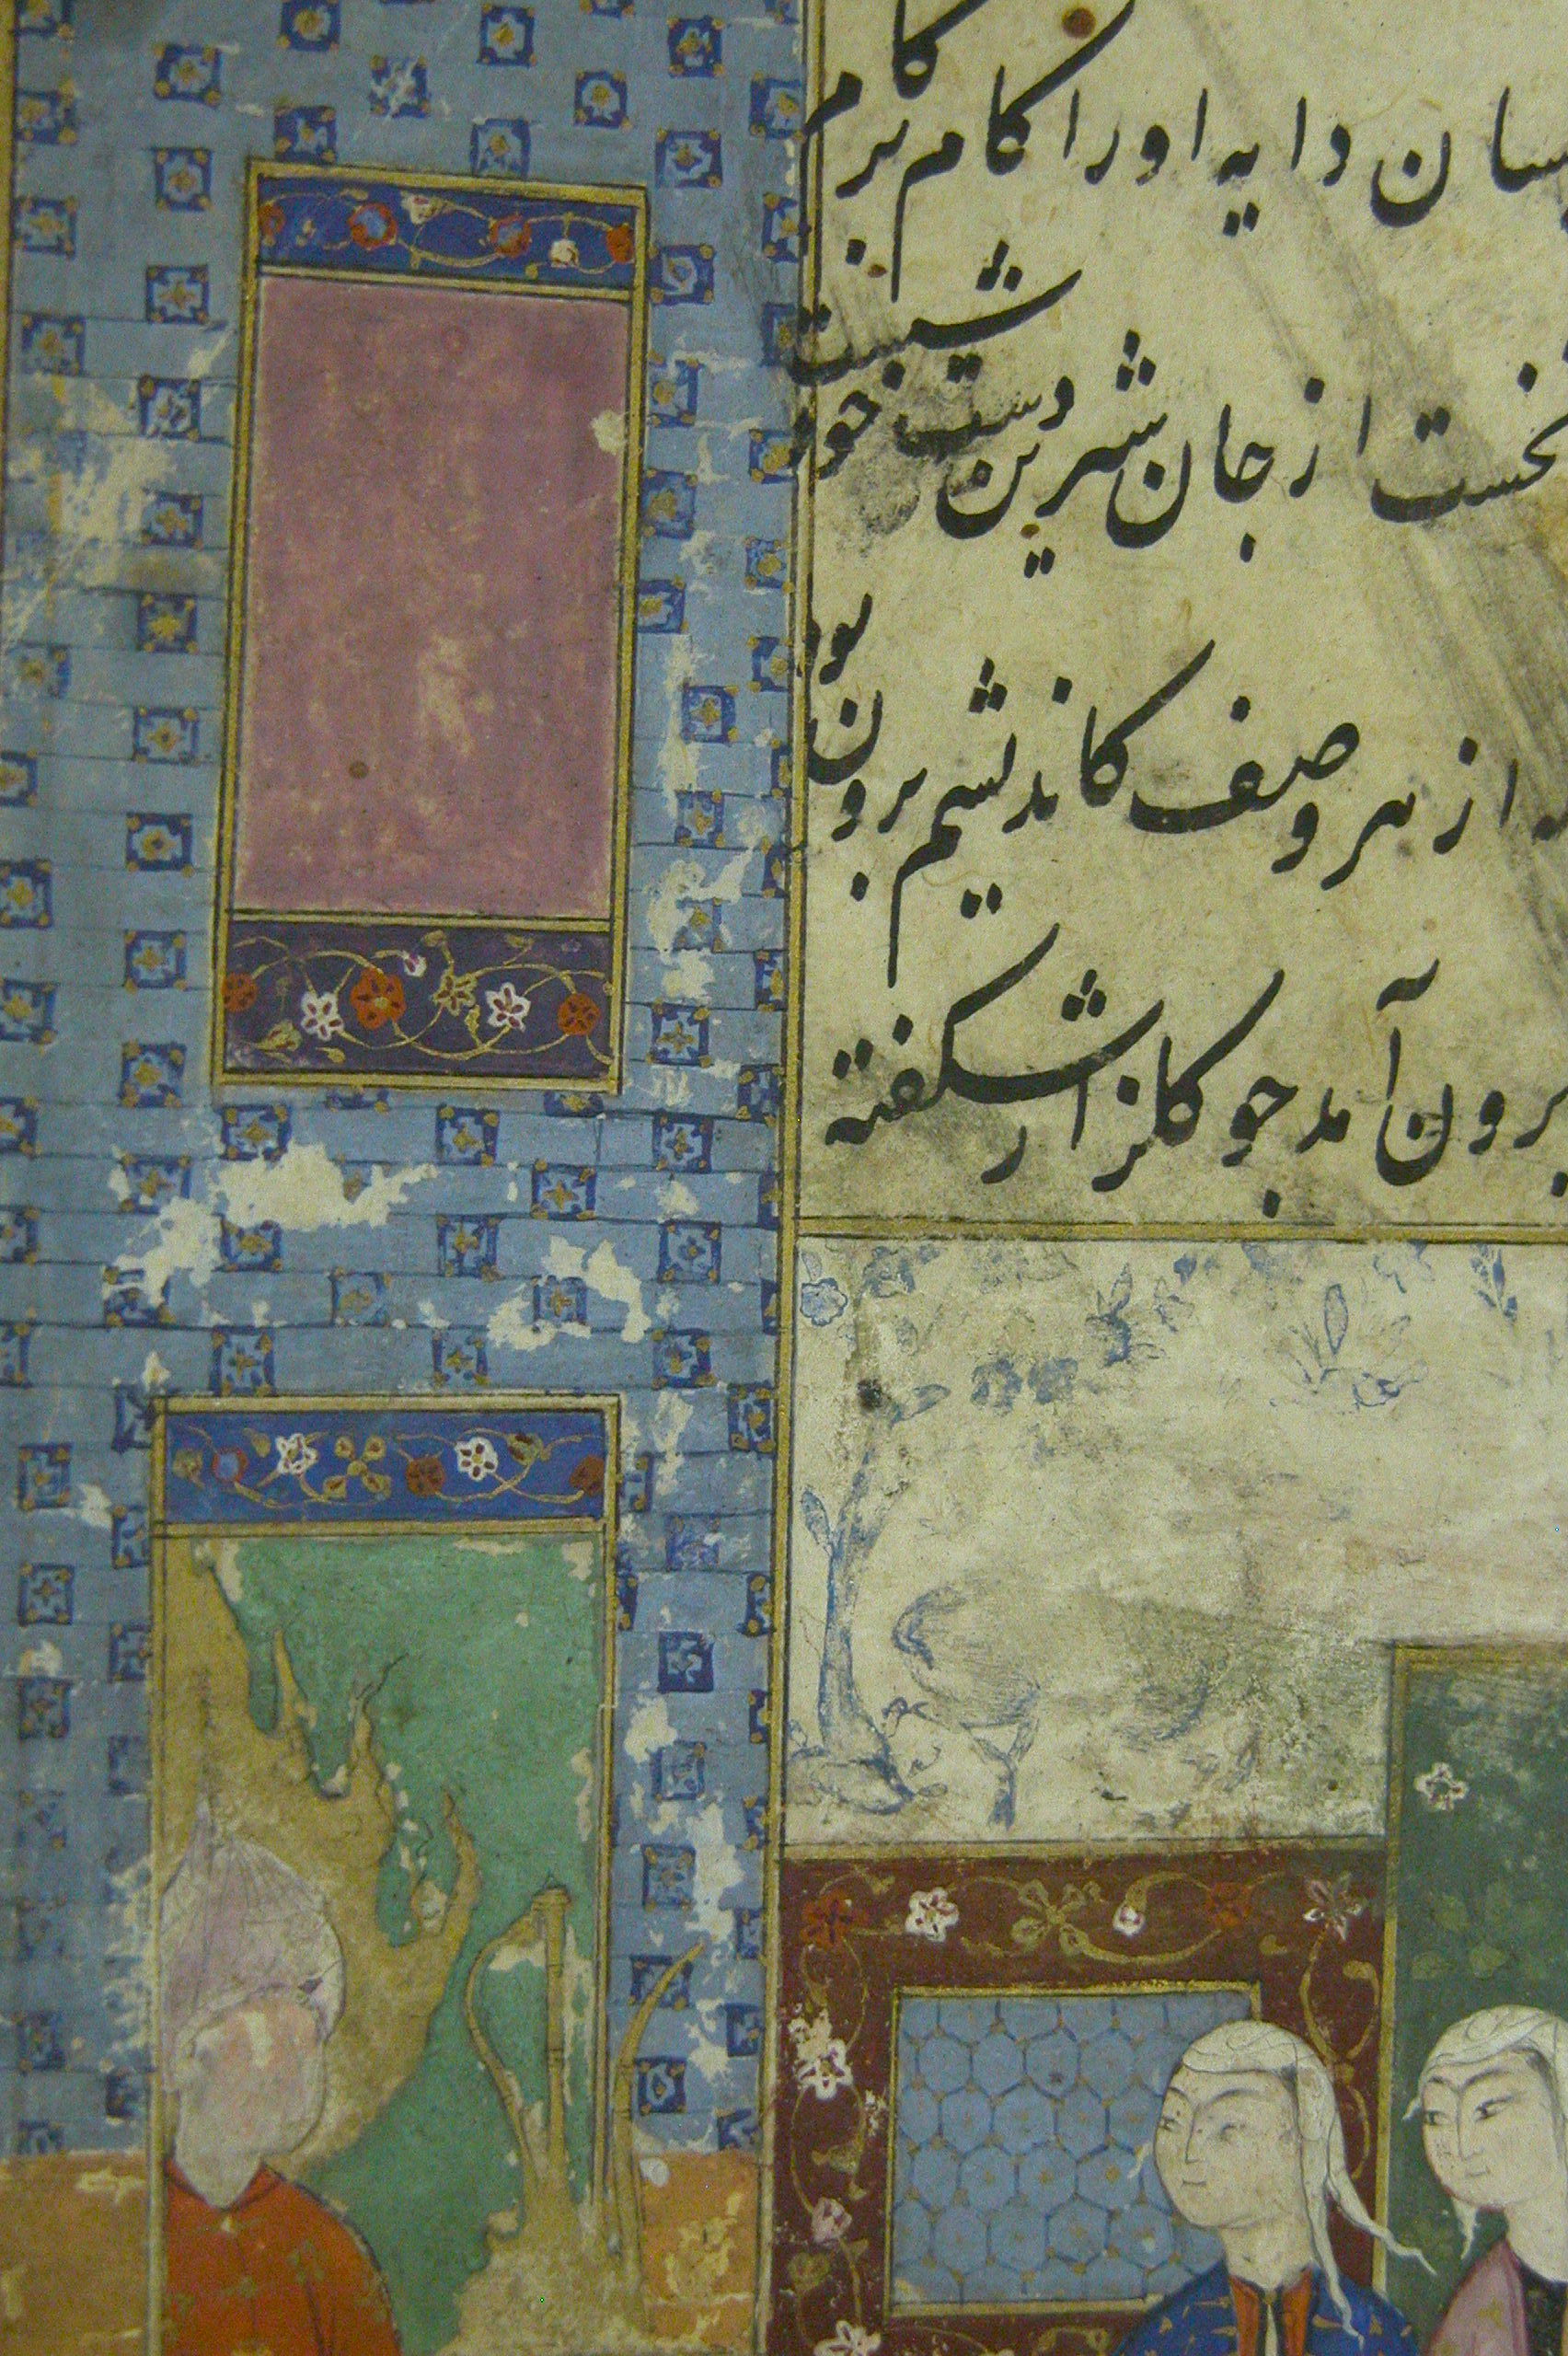 سان دایه اورا کام بر کام
نخست از جان شیرین دست خود
از هر وصف کاندیشم برون بود
برون آمد چو کلزار شکفته